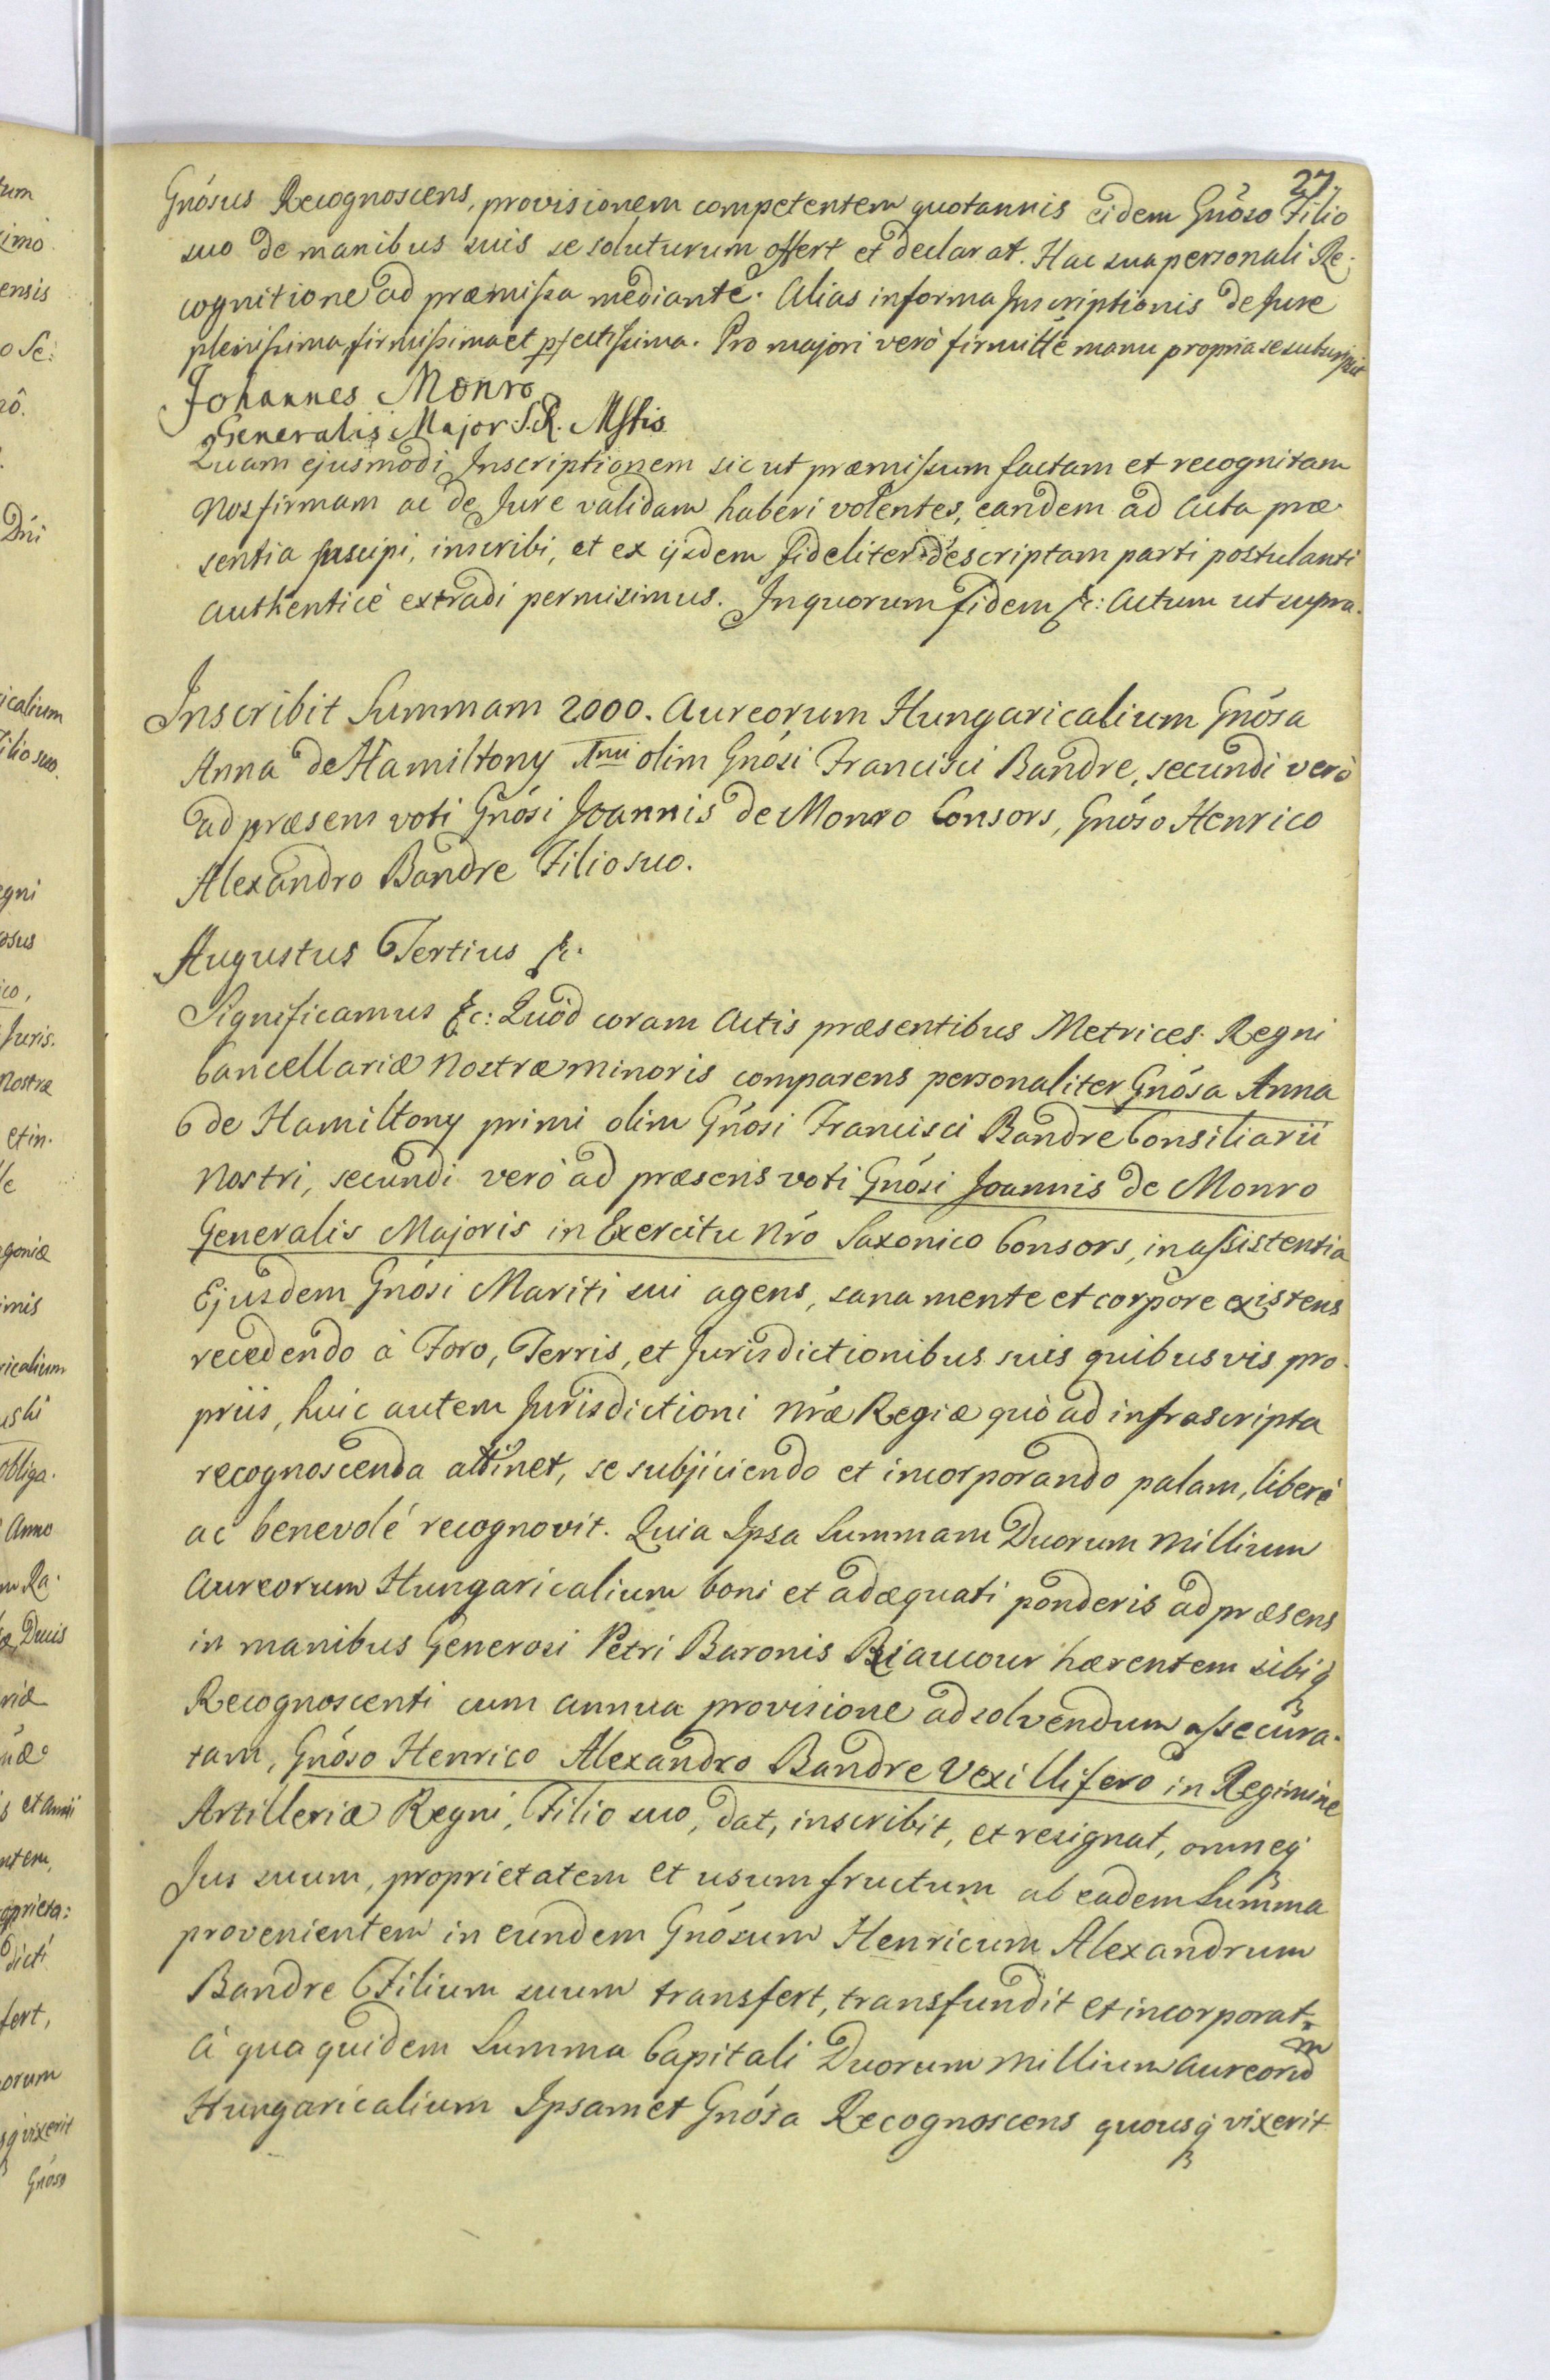 27.
Gnósus Recognoscens, provisionem competentem quotannis eidem Gnóso Filio
suo de manibus suis se soluturum offert et declarat. Hac sua personali Re-
cognitione ad præmissa mediante. Alias informa Inscriptionis de Jure
plenissima, firmissima et pfectissima. Pro majori verò firmitte manu propria se subscripsit
Johannes Monro
Generalis Major S. R. Mstis
Quam ejusmodi Inscriptionem sic ut præmissum factam et recognitam
Nos firmam ac de Jure validam haberi volentes, eandem ad Acta præ-
sentia suscipi, inscribi, et ex ijsdem fideliter descriptam parti postulanti
authenticè extradi permisimus. In quorum fidem &: Actum ut supra.
Inscribit Summam 2000. Aureorum Hungaricalium Gnósa
Anna de Hamiltony 1mi olim Gnósi Francisci Bandre, secundi verò
ad præsens voti Gnósi Joannis de Monro Consors, Gnóso Henrico
Alexandro Bandre Filio suo.
Augustus Tertius &.
Significamus &c: Quod coram Actis præsentibus Metrices Regni
Cancellariæ Nostræ minoris comparens personaliter Gnósa Anna
de Hamiltony primi olim Gnósi Francisci Bandre Consiliarii
Nostri, secundi verò ad præsens voti Gnósi Joannis de Monro
Generalis Majoris in Exercitu Nró Saxonico Consors, in assistentia
Ejusdem Gnósi Mariti sui agens, sana mente et corpore existens
recedendo à Foro, Terris, et Jurisdictionibus suis quibusvis pro-
priis, huic autem Jurisdictioni Nræ Regiæ quò ad infrascripta
recognoscenda attinet, se subjiciendo et incorporando palam, liberè
ac benevolé recognovit. Quia Ipsa Summam Duorum Millium
Aureorum Hungaricalium boni et adæquati ponderis ad præsens
in manibus Generosi Petri Baronis Riaucour hærentem sibiq
Recognoscenti cum annua provisione ad solvendum assecura-
tam, Gnóso Henrico Alexandro Bandre Vexillifero in Regimine
Artilleriæ Regni, Filio suo, dat, inscribit, et resignat, omneq
Jus suum, proprietatem et usumfructum ab eadem Summa
provenientem in eundem Gnósum Henricum Alexandrum
Bandre Filium suum transfert, transfundit et incorporat.
à qua quidem Summa Capitali Duorum Millium Aureorum
Hungaricalium Ipsamet Gnósa Recognoscens quousq vixerit